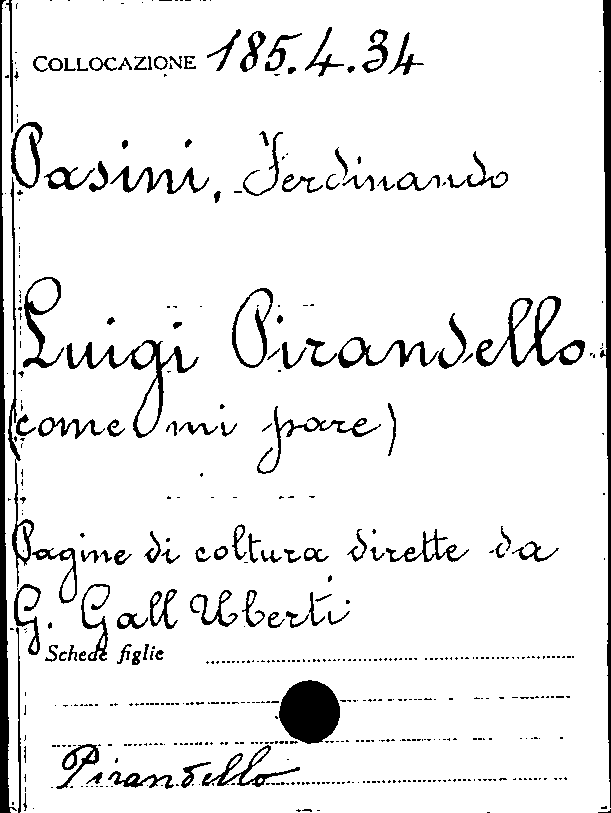 COLLOCAZIONE 185.4.34
Pasini, Ferdinando
Luigi Pirandello
(come mi pare)
Pagine di coltura dirette da
G. Gall Uberti
Schede figlie
Pirandello